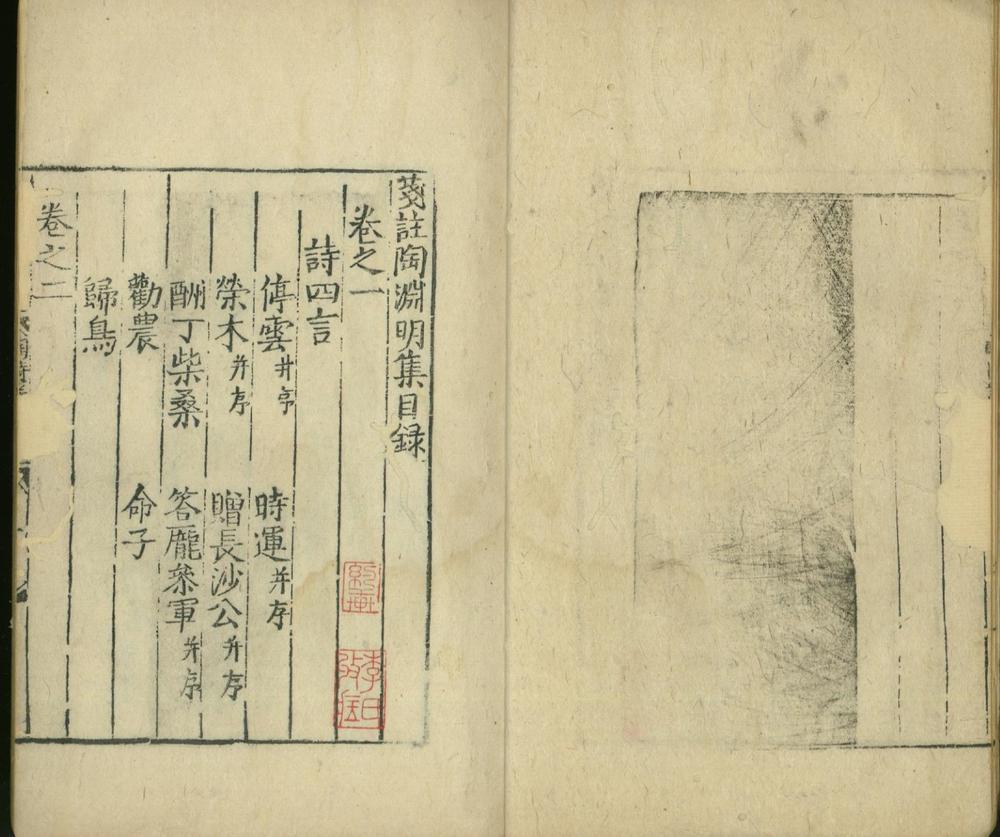 箋註陶淵明集目録
卷之一
詩四言
停雲并序 時運并序
榮木并序 贈長沙公并序
酬丁柴桑 答龐叅軍并序
勸農 命子
歸鳥
卷之二